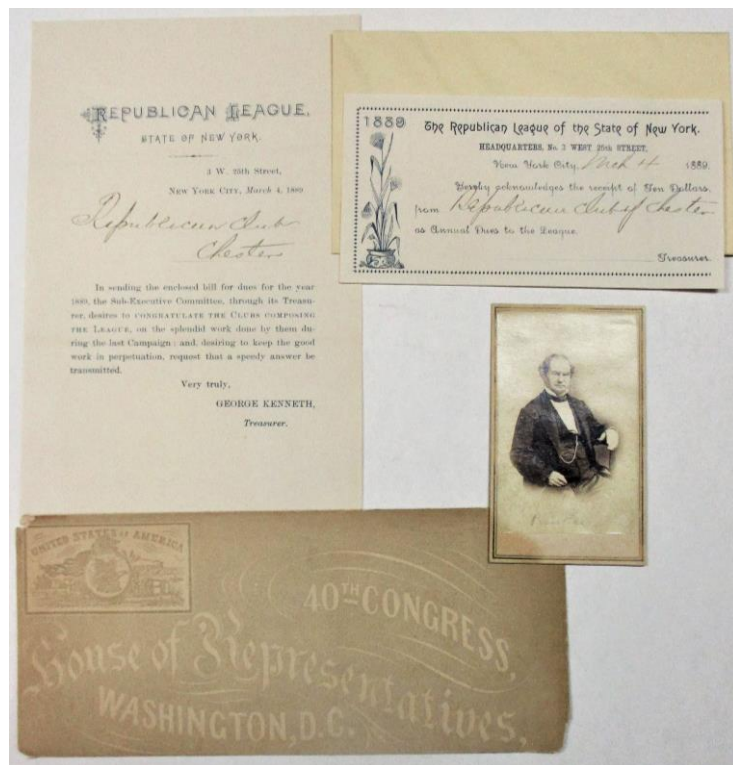 REPUBLICAN LEAGUE,
STATE OF NEW YORK.
3 W. 25th Street,
NEW YORK CITY, March 4, 1889
Republican Club
Chester
In sending the enclosed bill for dues for the year
1889, the Sub-Executive Committee, through its Treasu-
rer, desires to CONGRATULATE THE CLUBS COMPOSING
THE LEAGUE, on the splendid work done by them du-
ring the last Campaign: and, desiring to keep the good
work in perpetuation, request that a speedy answer be
transmitted.
Very truly,
GEORGE KENNETH,
Treasurer.
1889
The Republican League of the State of New York.
HEADQUARTERS, No. 3 WEST 25th STREET,
New York City, Mch 4 1889.
Hereby acknowledges the receipt of Ten Dollars,
from Republican Club of Chester
as Annual Dues to the League.
Treasurer.
UNITED STATES OF AMERICA
40TH CONGRESS,
House of Representatives,
WASHINGTON, D.C.